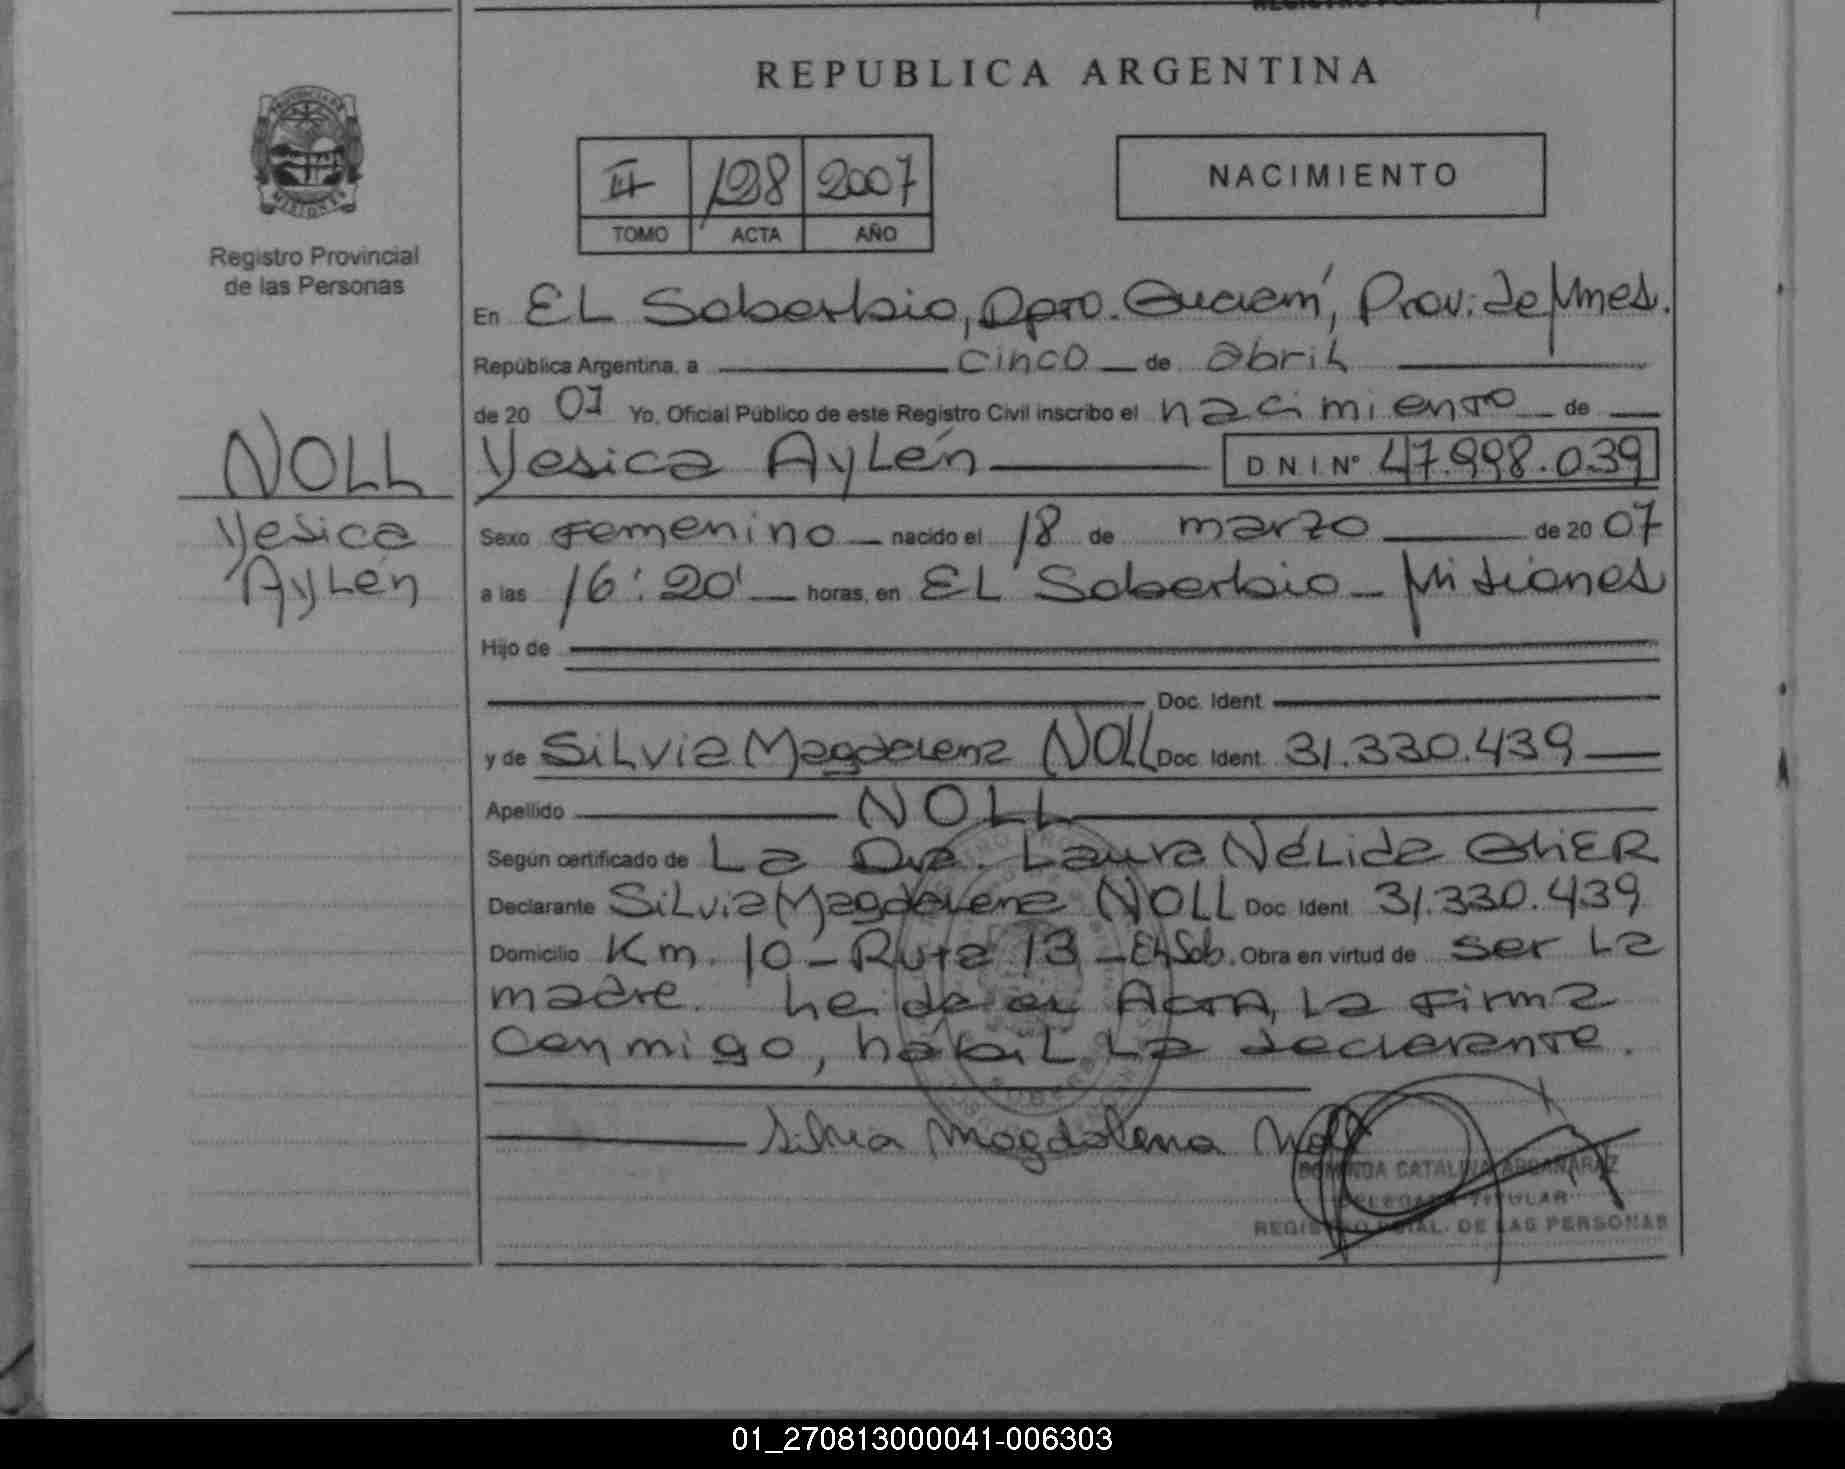 REPUBLICA ARGENTINA
PROVINCIA DE
MISIONES
Registro Provincial
de las Personas
II 128 2007
TOMO ACTA AÑO
NACIMIENTO
En EL Soberbio, Dpto. Guaraní, Prov. de Mnes.
República Argentina, a cinco de abril
de 20 07 Yo, Oficial Público de este Registro Civil inscribo el nacimiento de
NOLL
Yesica
Aylén
Yesica Aylén DNI Nº 47.998.039
Sexo Femenino nacido el 18 de marzo de 20 07
a las 16:20' horas, en EL Soberbio - Misiones
Hijo de
Doc. Ident.
y de Silvia Magdalena NOLL Doc. Ident. 31.330.439
Apellido NOLL
Según certificado de La Dra. Laura Nélida
Declarante Silvia Magdalena NOLL Doc. Ident. 31.330.439
Domicilio Km. 10 - Ruta 13 - El Sob. Obra en virtud de ser la
madre. Leída el Acta, la firma
conmigo, hábil la declarante.
Silvia Magdalena Noll
CATALINA ARGAÑARAZ
DELEGADA TITULAR
REGISTRO PCIAL. DE LAS PERSONAS
01_270813000041-006303